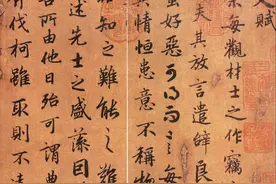 賦
余每觀材士之作竊
夫其放言遣辭良
蚩好惡可得而言每
其情恒患意不稱物
知之難能之難
述先士之盛藻因
所由他日殆可謂曲
伐柯雖取則不遠